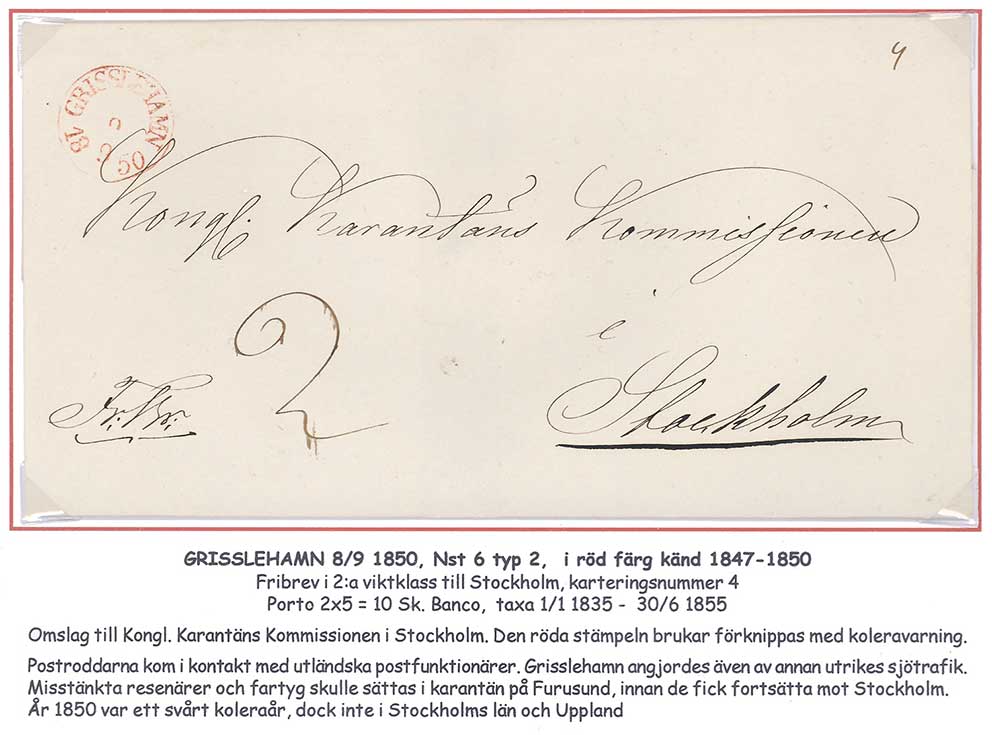 4
GRISSLEHAMN
50
18
Kongl. Karantäns Kommissionen
i
Stockholm
Fr: Br:
2
GRISSLEHAMN 8/9 1850, Nst 6 typ 2, i röd färg känd 1847-1850
Fribrev i 2:a viktklass till Stockholm, karteringsnummer 4
Porto 2x5 = 10 Sk. Banco, taxa 1/1 1835 - 30/6 1855
Omslag till Kongl. Karantäns Kommissionen i Stockholm. Den röda stämpeln brukar förknippas med koleravarning.
Postroddarna kom i kontakt med utländska postfunktionärer. Grisslehamn angjordes även av annan utrikes sjötrafik.
Misstänkta resenärer och fartyg skulle sättas i karantän på Furusund, innan de fick fortsätta mot Stockholm.
År 1850 var ett svårt koleraår, dock inte i Stockholms län och Uppland